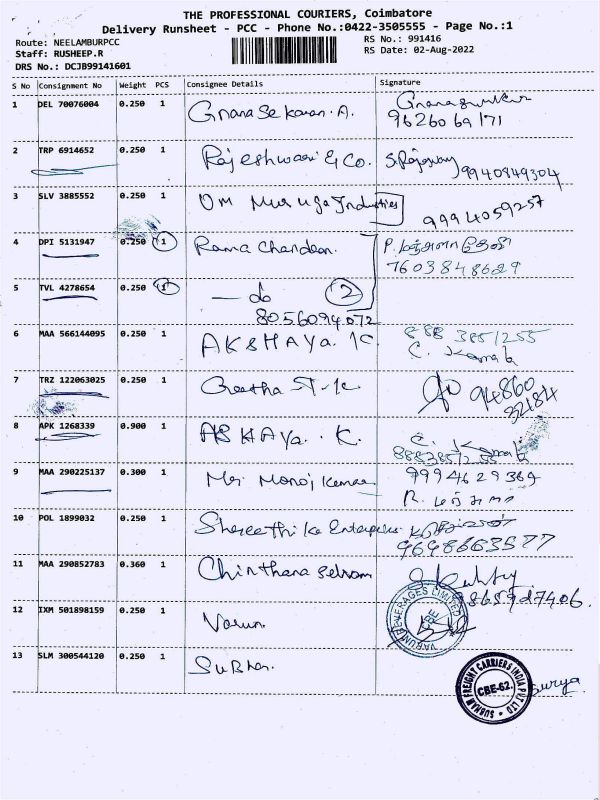 THE PROFESSIONAL COURIERS, Coimbatore
Delivery Runsheet - PCC - Phone No.:0422-3505555 - Page No.:1
Route: NEELAMBURPCC
RS No.: 991416
Staff: RUSHEEP.R
RS Date: 02-Aug-2022
DRS No.: DCJB99141601
S No Consignment No Weight PCS Consignee Details Signature
1 DEL 70076004 0.250 1 Gnana Sekaran. A.
96260 69171
2 TRP 6914652 0.250 1 Rajeshwari & Co.
9940849304
3 SLV 3885552 0.250 1 Om Muruga Industries
9994059257
4 DPI 5131947 0.250 1 Rama Chandran.
7603848629
5 TVL 4278654 0.250 1 2
8056094072
6 MAA 566144095 0.250 1 AKSHAYa. K. 888 3851255
7 TRZ 122063025 0.250 1 Geetha 94860
32184
8 APK 1268339 0.900 1 AKSHAYa. K.
8883851255
9 MAA 290225137 0.300 1 Mr. Manoj Kumar 9994629369
10 POL 1899032 0.250 1 Shreethika Enterprises
9698663577
11 MAA 290852783 0.360 1 Chinthana Selvam
9865927406.
12 IXM 501898159 0.250 1 Varun.
VARUN BEVERAGES LIMITED
CBE
13 SLM 300544120 0.250 1 Subham.
SUBHAM FREIGHT CARRIERS INDIA PVT LTD
CBE-62.
Surya.